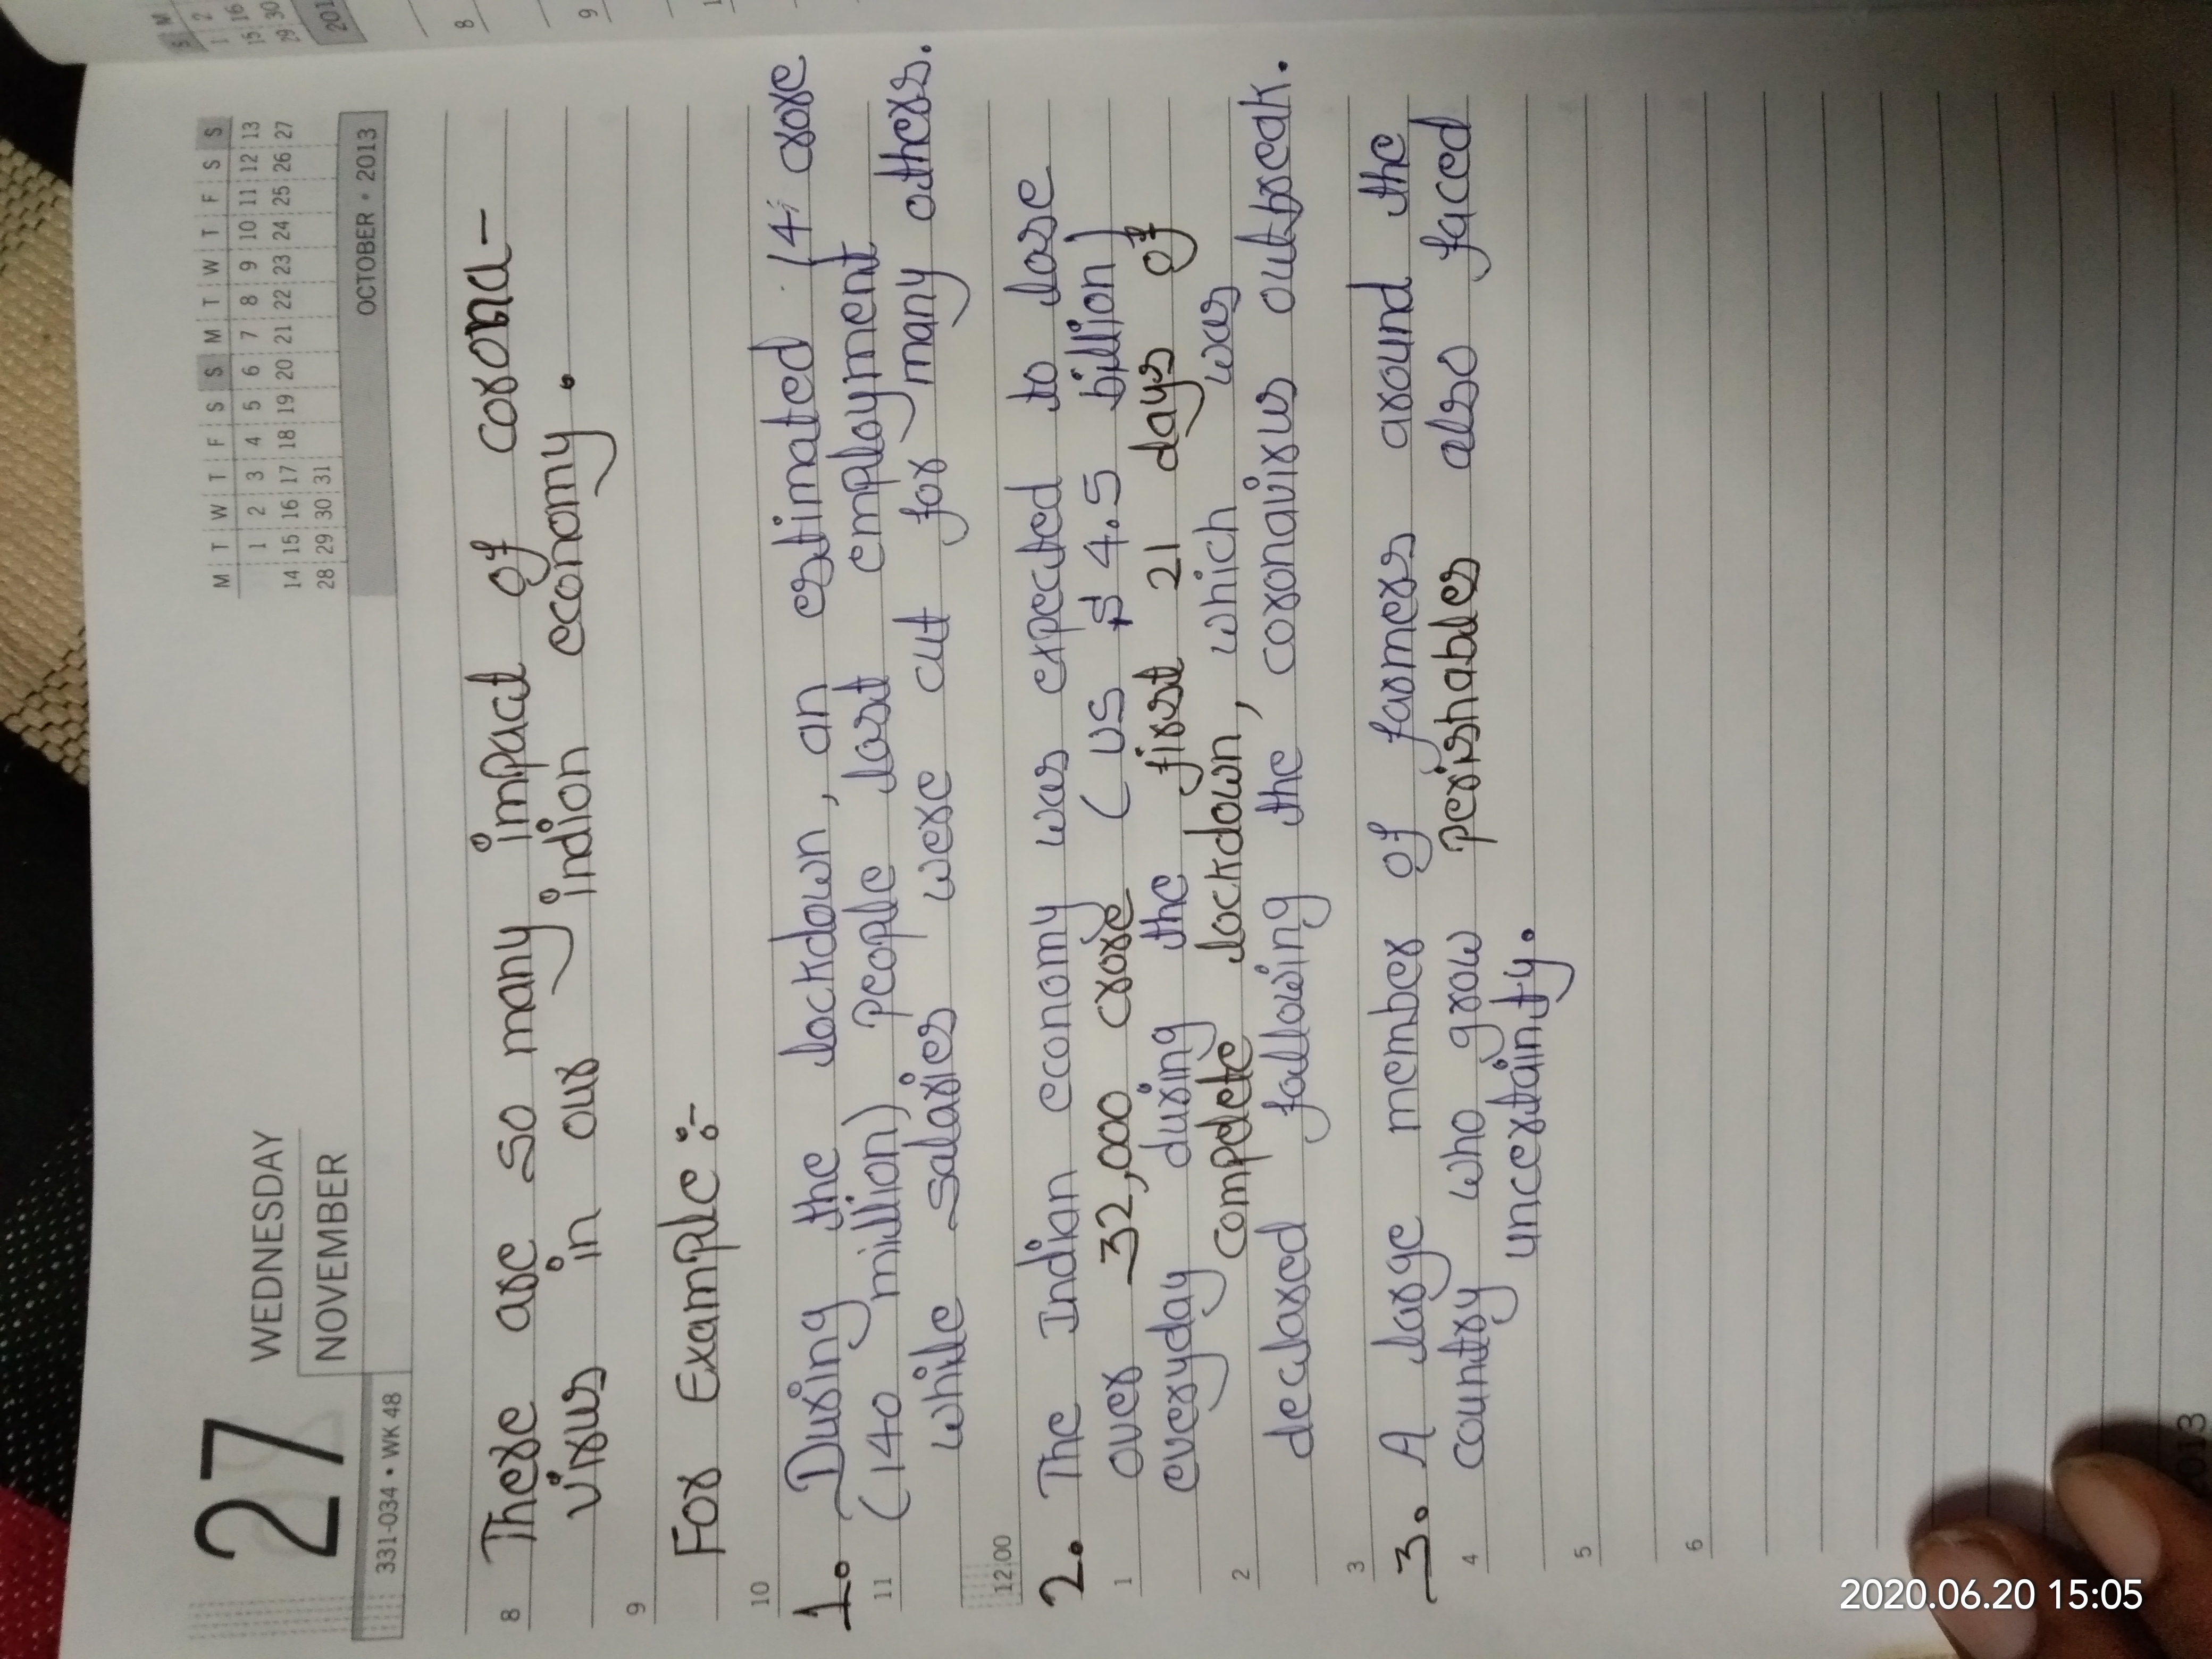 27
WEDNESDAY
NOVEMBER
331-034 • WK 48
M T W T F S S M T W T F S S
1 2 3 4 5 6 7 8 9 10 11 12 13
14 15 16 17 18 19 20 21 22 23 24 25 26 27
28 29 30 31
OCTOBER • 2013
8 There are so many impact of corona-
virus in our indion economy.
9
For Example :-
10
1. During the lockdown, an estimated 14 crore
11 (140 million) people lost employment
while salaries were cut for many others.
12.00
2. The Indian economy was expected to lose
1 over 32,000 crore (US $ 4.5 billion)
everyday during the first 21 days of
2 complete lockdown, which was
declared following the coronavirus outbreak.
3
3. A large member of farmers around the
4 country who grow perishables also faced
uncertainty.
5
6
2013
2020.06.20 15:05
S M
1 2
15 16
29 30
201
8
9
1